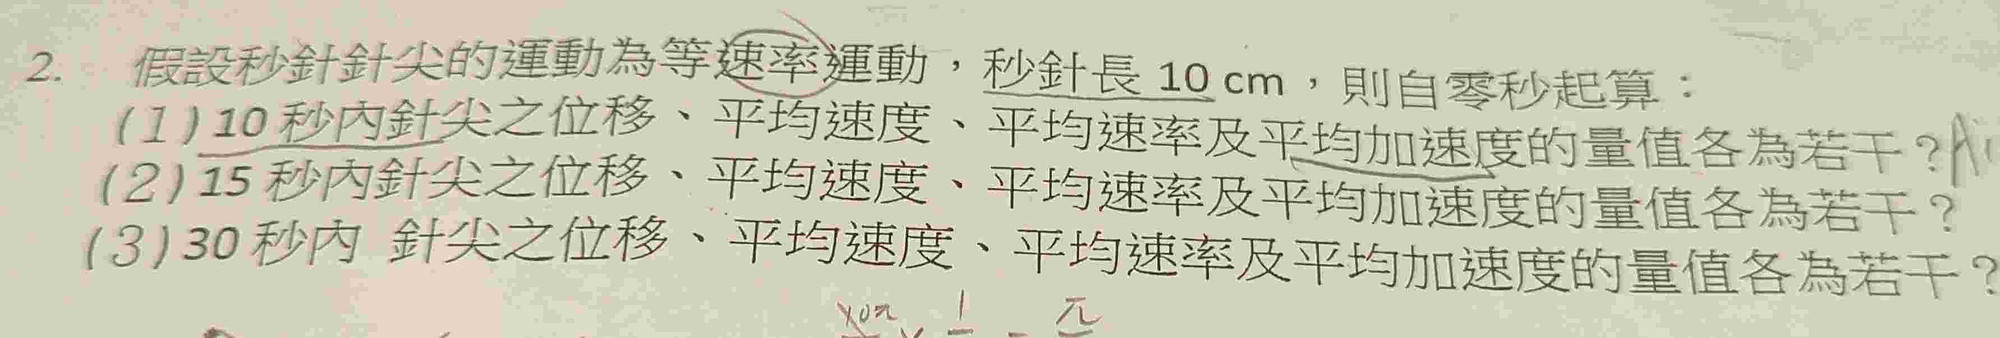 2. 假設秒針針尖的運動為等速率運動，秒針長 10 cm，則自零秒起算：
(1) 10 秒內針尖之位移、平均速度、平均速率及平均加速度的量值各為若干？
(2) 15 秒內針尖之位移、平均速度、平均速率及平均加速度的量值各為若干？
(3) 30 秒內 針尖之位移、平均速度、平均速率及平均加速度的量值各為若干？
10π × 1 = π